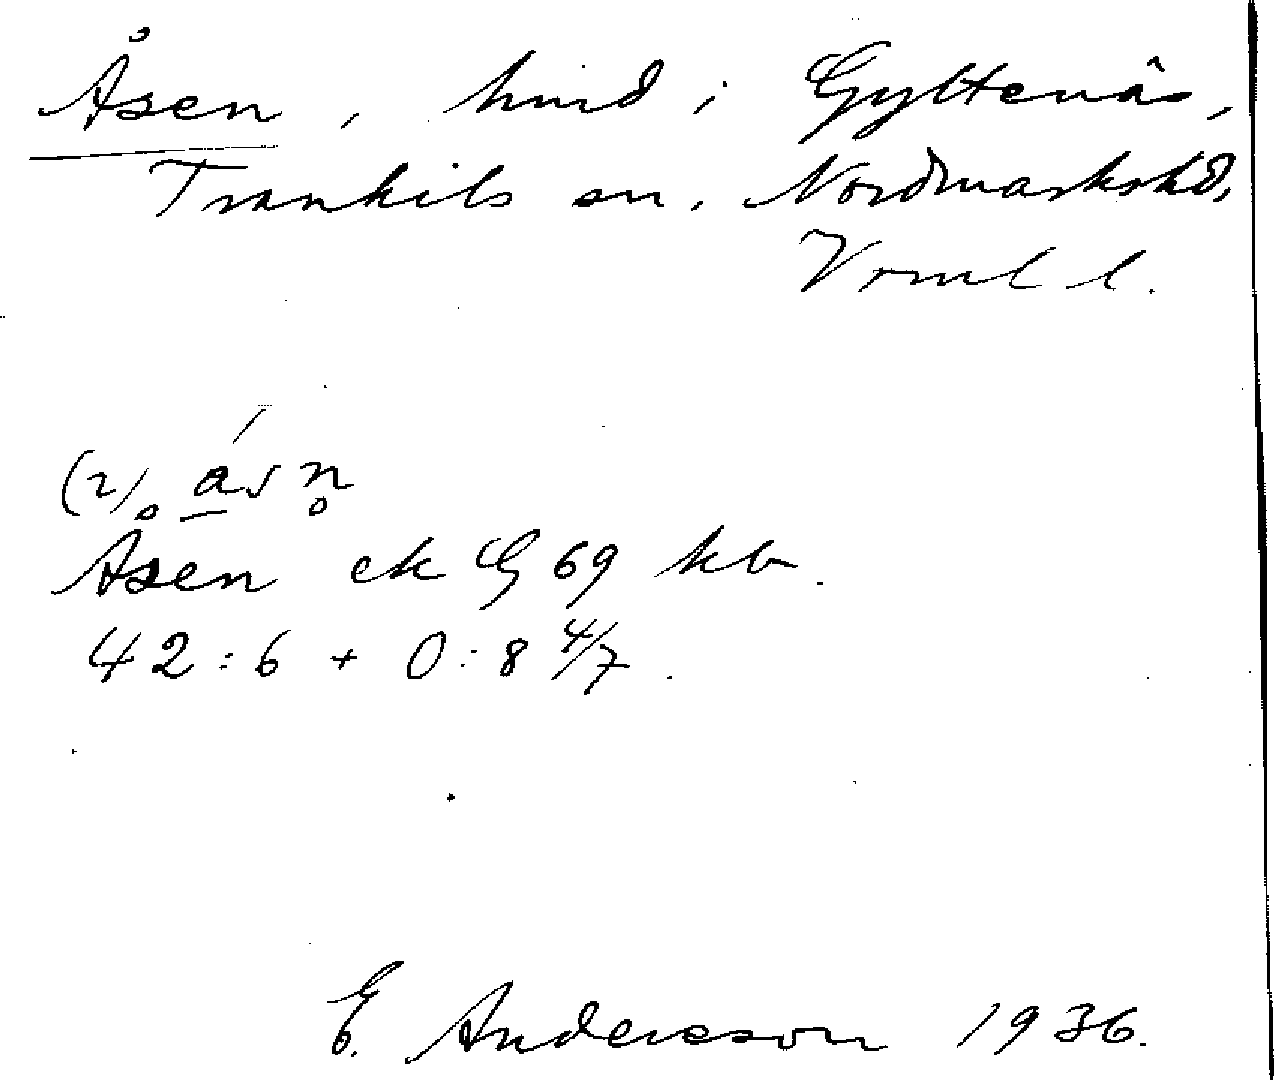 Åsen, hmd i Gyltenäs,
Trankils sn. Nordmarks hd,
Vrml l.
(2) åsn̥
Åsen ek G 69 kb.
42:6 + 0:8 4/7.
E. Andersson 1936.